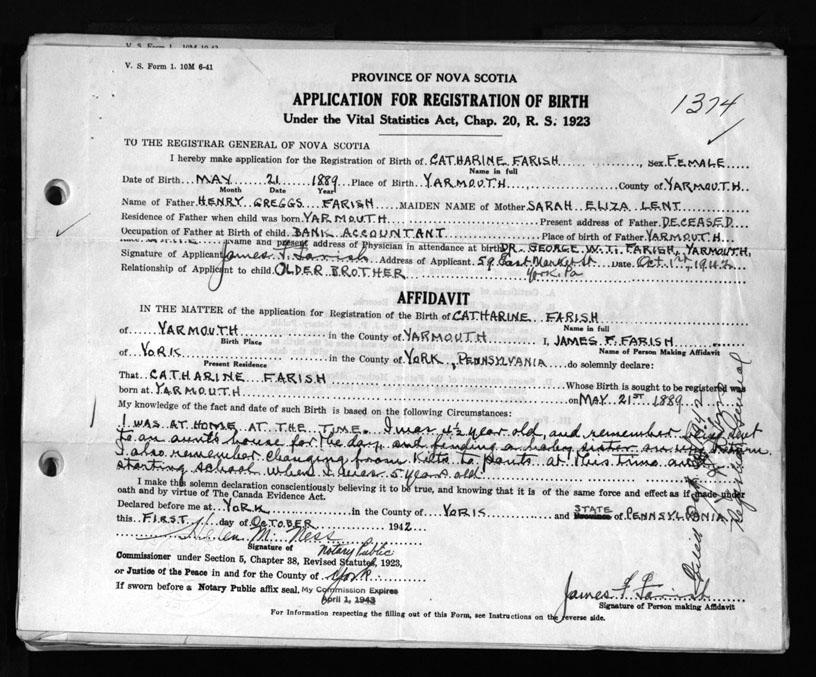 V. S. Form 1. 10M 6-41
PROVINCE OF NOVA SCOTIA
APPLICATION FOR REGISTRATION OF BIRTH
1374
Under the Vital Statistics Act, Chap. 20, R. S. 1923
TO THE REGISTRAR GENERAL OF NOVA SCOTIA
I hereby make application for the Registration of Birth of CATHARINE FARISH, Sex FEMALE
Name in full
Date of Birth MAY 21 1889 Place of Birth YARMOUTH, County of YARMOUTH
Month Date Year
Name of Father HENRY GREGGS FARISH MAIDEN NAME of Mother SARAH ELIZA LENT
Residence of Father when child was born YARMOUTH Present address of Father DECEASED
Occupation of Father at Birth of child BANK ACCOUNTANT Place of birth of Father YARMOUTH
Name and present address of Physician in attendance at birth DR. GEORGE W. T. FARISH, YARMOUTH,
Signature of Applicant James F. Farish Address of Applicant 59 East Market St Date Oct 1st, 1942
Relationship of Applicant to child OLDER BROTHER York, Pa
AFFIDAVIT
IN THE MATTER of the application for Registration of the Birth of CATHARINE FARISH
Name in full
of YARMOUTH in the County of YARMOUTH I, JAMES F. FARISH
Birth Place Name of Person Making Affidavit
of YORK in the County of YORK, PENNSYLVANIA do solemnly declare:
Present Residence
That CATHARINE FARISH Whose Birth is sought to be registered was
born at YARMOUTH on MAY 21ST 1889
My knowledge of the fact and date of such Birth is based on the following Circumstances:
I WAS AT HOME AT THE TIME. I was 4½ year old, and remember being sent
to an aunt's house for the day, and finding a baby sister on my return.
I also remember changing from Kilts to Pants at this time and
starting school when I was 5 years old
I make this solemn declaration conscientiously believing it to be true, and knowing that it is of the same force and effect as if made under
oath and by virtue of The Canada Evidence Act.
Declared before me at YORK in the County of YORK and STATE Province of PENNSYLVANIA
this FIRST day of OCTOBER 1942
Helen M. Ness
Signature of Notary Public
Commissioner under Section 5, Chapter 38, Revised Statutes, 1923,
or Justice of the Peace in and for the County of York
If sworn before a Notary Public affix seal. My Commission Expires
April 1, 1943
James F Farish
Signature of Person making Affidavit
For Information respecting the filling out of this Form, see Instructions on the reverse side.
Registrar General